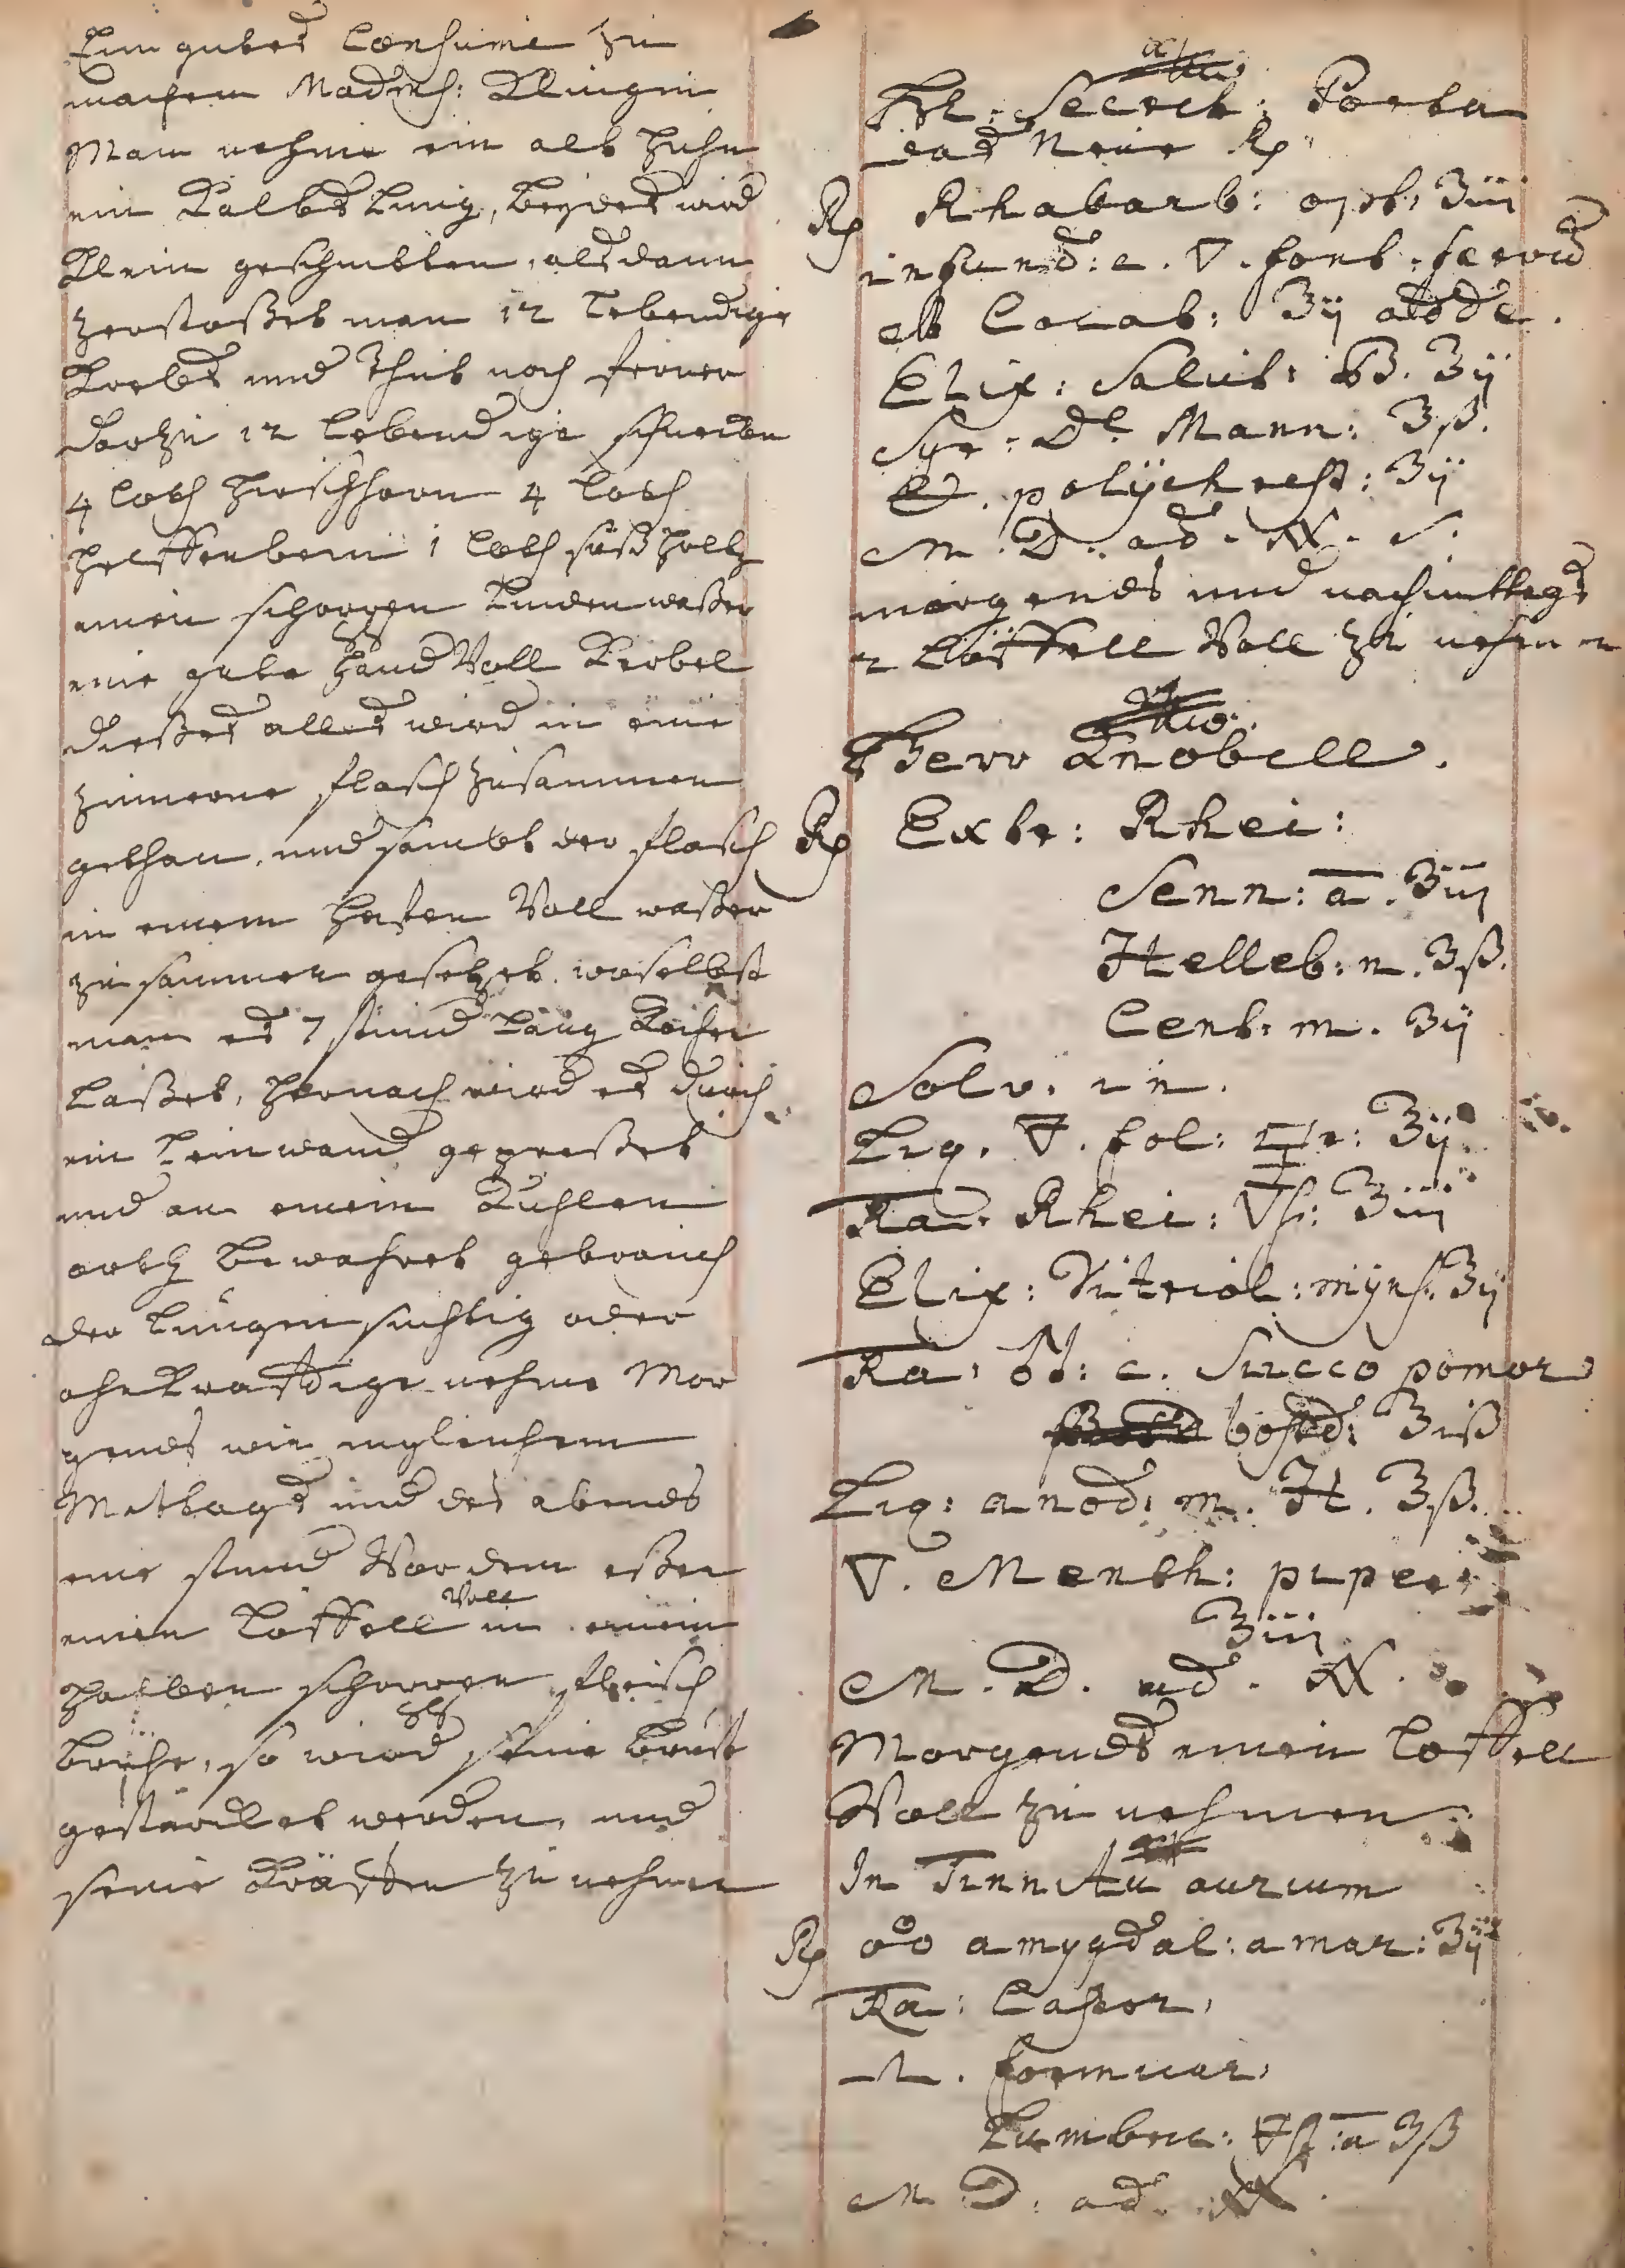 Ein gutes Consume zu
machen Mad. Klingin
Man nehme ein alt Huhn
ein Kalbs Lung, beydes wird
klein geschnitten, alsdann
zerstoßet man 12 lebendige
Krebs und Thut noch ferner
darzu 12 lebendige schnecken
4 loth Hirschhorn 4 loth
Helffenbein 1 loth süß holtz
einen schoppen Linden waßer
eine gute Hand Voll Kerbel
dießes alles wird in eine
zinnerne flasch zusammen
gethan, und sambt der flasch
in einem Hafen Voll waßer
zusammen gesetzet, woselbst
man es 7 stund lang kochen
Laßet, hernach wird es durch
ein Leinwand gepreßet
und an einem Kuhlen
orth bewahret gebrauch
der Lungensuchtig oder
ohnkrafftige nehme Mor
gends wie ingleichem
Mittags und des abends
eine stund Vor dem eßen
einen Löffell Voll in einem
halben schoppen fleisch
brühe, so wird seine brust
gestärcket werden, und
seine Kräfften zu nehmen
Secret: Porta
das Neue Rp
Rp Rhabarb: opt: ʒiii
infund: c. ▽. font. fervid
Elix: Salut: ʒij
Syr: Mann: ʒß.
polÿchrest: ʒij
M. D. ad. S.
morgends und nachmittags
2 Löffell Voll zu nehmen
Herr Knobell.
Rp Extr: Rhei:
Senn: a. ʒiij
Helleb: n. ʒß.
Cent: m. ʒij
Solv. in.
Liq. fol: ʒij.
Ra. Rhei: ʒiiij
Elix: Vitriol: mÿns. ʒij
Ra. c. Succo pomor
ʒiß
Liq: anod: m. H. ʒß.
▽. Menth: piper:
ʒiij
M. D. ad.
Morgends einen Loffell
Voll zu nehmen
In Tinnitu aurium
Rp amygdal: amar: ʒij
Ra: Castor,
formicar,
Lumbric: a ʒß
M. D: ad.